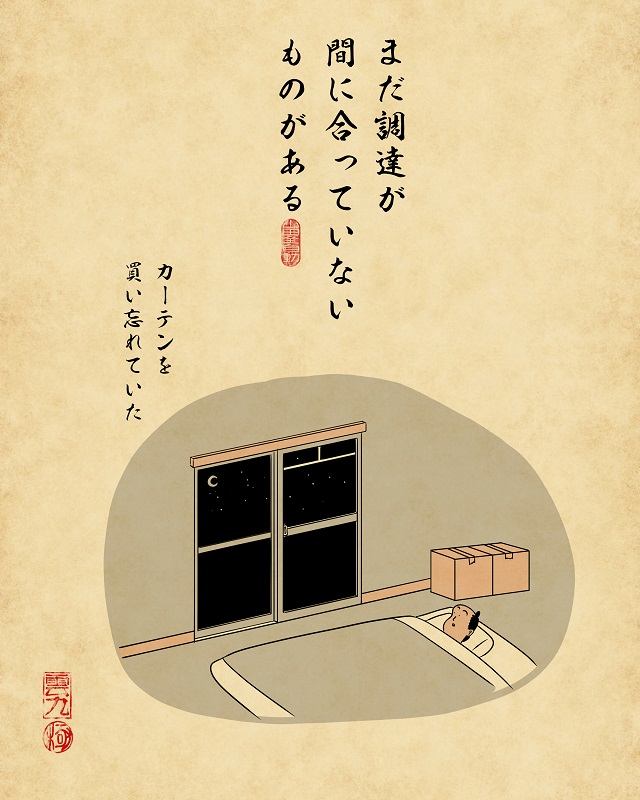 まだ調達が
間に合っていない
ものがある
カーテンを
買い忘れていた